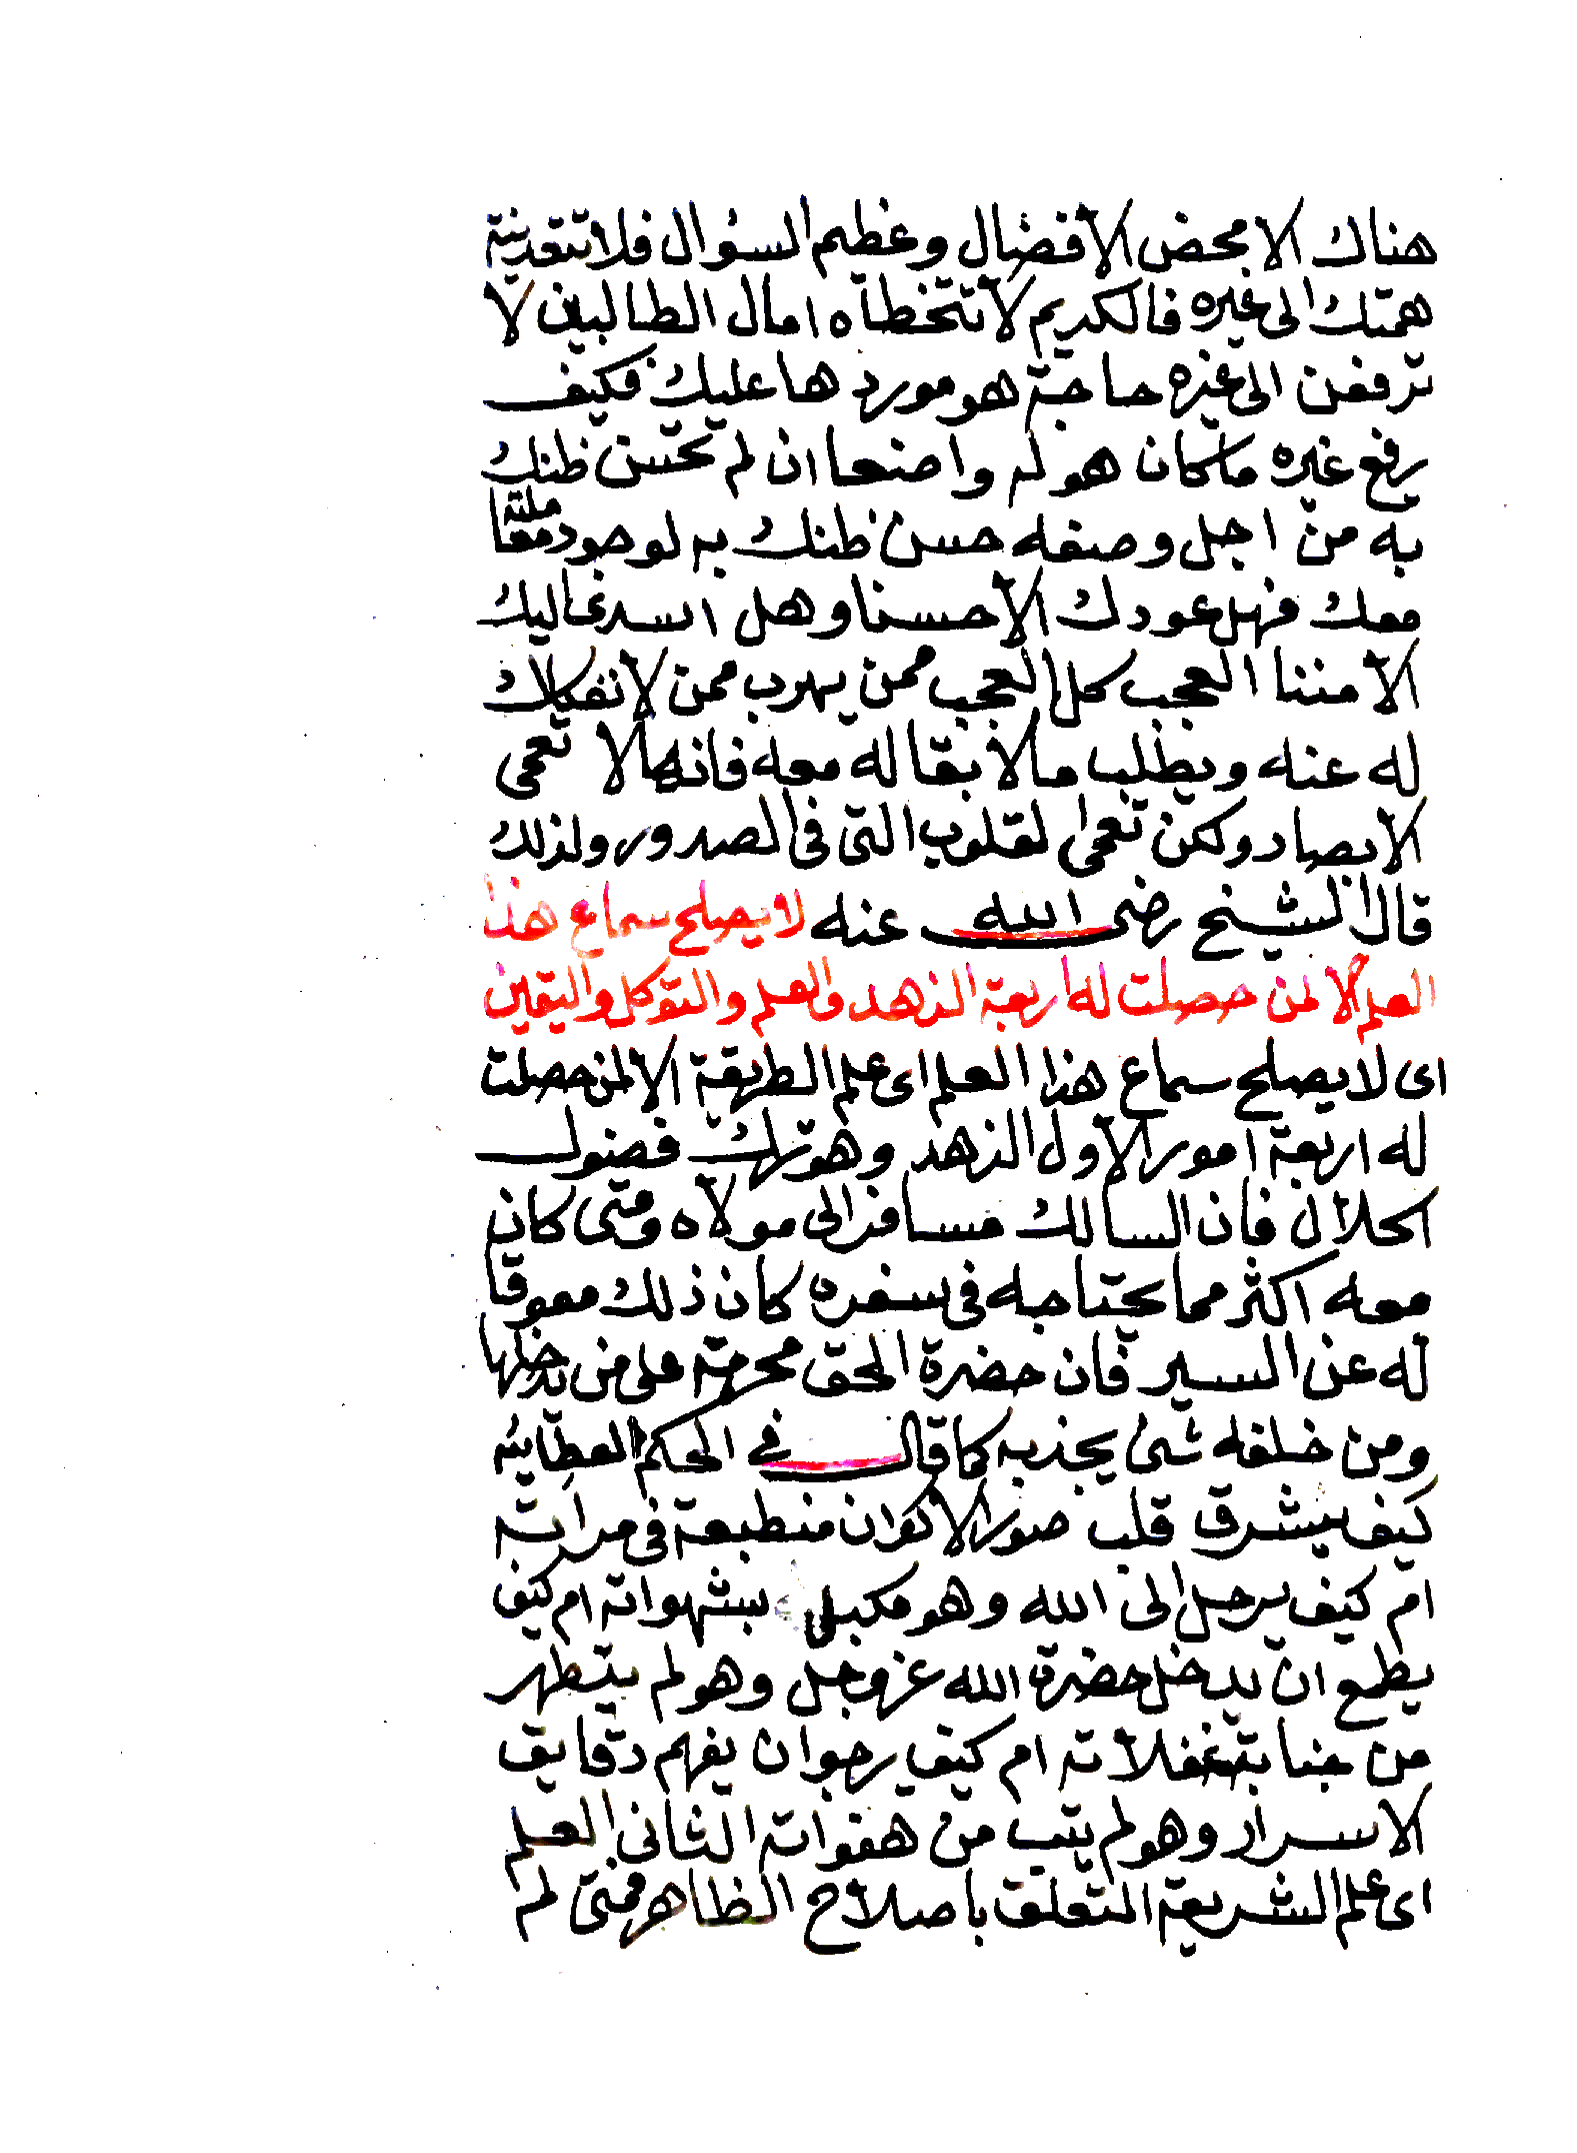 هناك الا محض الافضال وعظيم السؤال فلا تتعد نية
همتك الى غيره فالكريم لا تتخطاه امال الطالبين لا
ترفعن الى غيره حاجة هو موردها عليك فكيف
يرفع غيره ما كان هو له واضعا ان لم تحسن ظنك
به من اجل وصفه حسن ظنك به لوجود معاملته
معك فهل عودك الا حسنا وهل اسدى اليك
الا مننا العجب كل العجب ممن يهرب ممن لا انفكاك
له عنه ويطلب ما لا بقا له معه فانها لا تعمى
الابصار ولكن تعمى القلوب التى فى الصدور ولذلك
قال الشيخ رضى الله عنه لا يصلح سماع هذا
العلم الا لمن حصلت له اربعة الزهد والعلم والتوكل واليقين
اى لا يصلح سماع هذا العلم اى علم الطريقة الا لمن حصلت
له اربعة امور الاول الزهد وهو ترك فضول
الحلال فان السالك مسافر الى مولاه ومتى كان
معه اكثر مما يحتاجه فى سفره كان ذلك معوقا
له عن السير فان حضرة الحق محرمة على من يدخلها
ومن خلفه شئ يجذبه كما قال فى الحكم العطائيه
كيف يشرق قلب صور الاكوان منطبعة فى مراته
ام كيف يرحل الى الله وهو مكبل بشهواته ام كيف
يطمع ان يدخل حضرة الله عز وجل وهو لم يتطهر
من جنابة غفلاته ام كيف يرجوا ن يفهم دقايق
الاسرار وهو لم يتب من هفواته الثانى العلم
اى علم الشريعة المتعلق باصلاح الظاهر فمتى لم